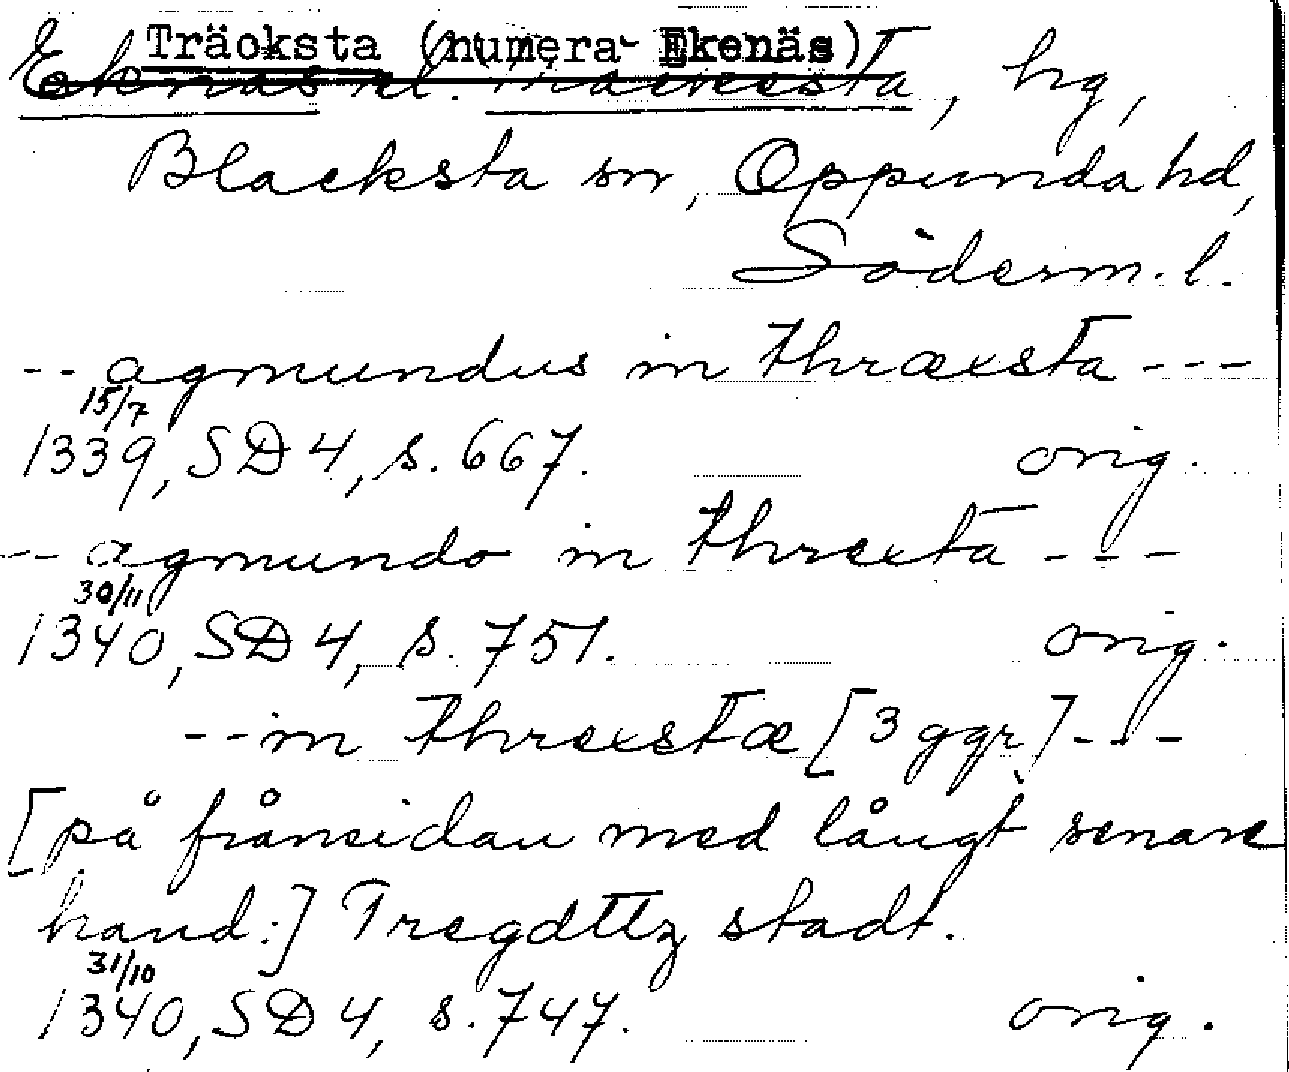 Träoksta (numera Ekenäs)
Ekenäs el. Träeksta, hg,
Blacksta sn, Oppunda hd,
Söderm. l.
-- agmundus in thræxsta ---
15/7
1339, SD 4, s. 667. orig.
-- agmundo in threxta ---
30/11
1340, SD 4, s. 751. orig.
-- in threxstæ [3 ggr] ---
[på frånsidan med långt senare
hand:] Tregdttz stadt.
31/10
1340, SD 4, s. 747. orig.